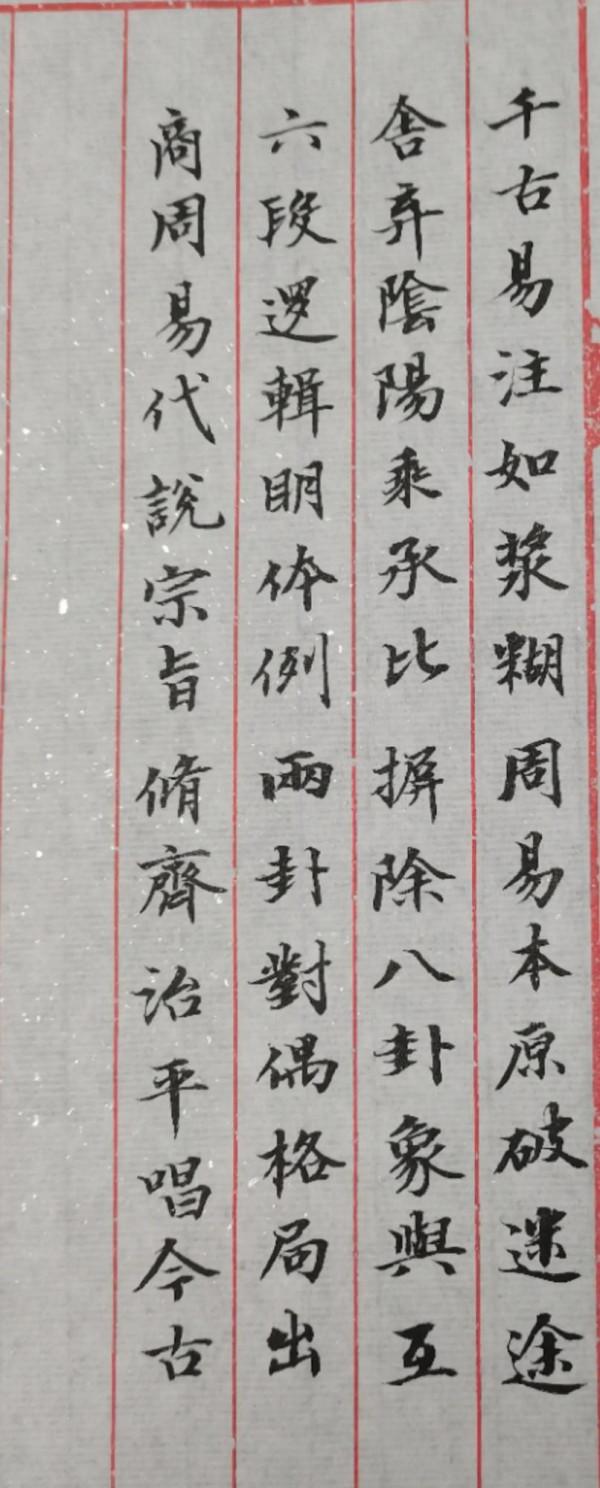 千古易注如漿糊周易本原破迷途
舍弃陰陽乘承比摒除八卦象與互
六段邏輯明体例兩卦對偶格局出
商周易代說宗旨脩齊治平唱今古